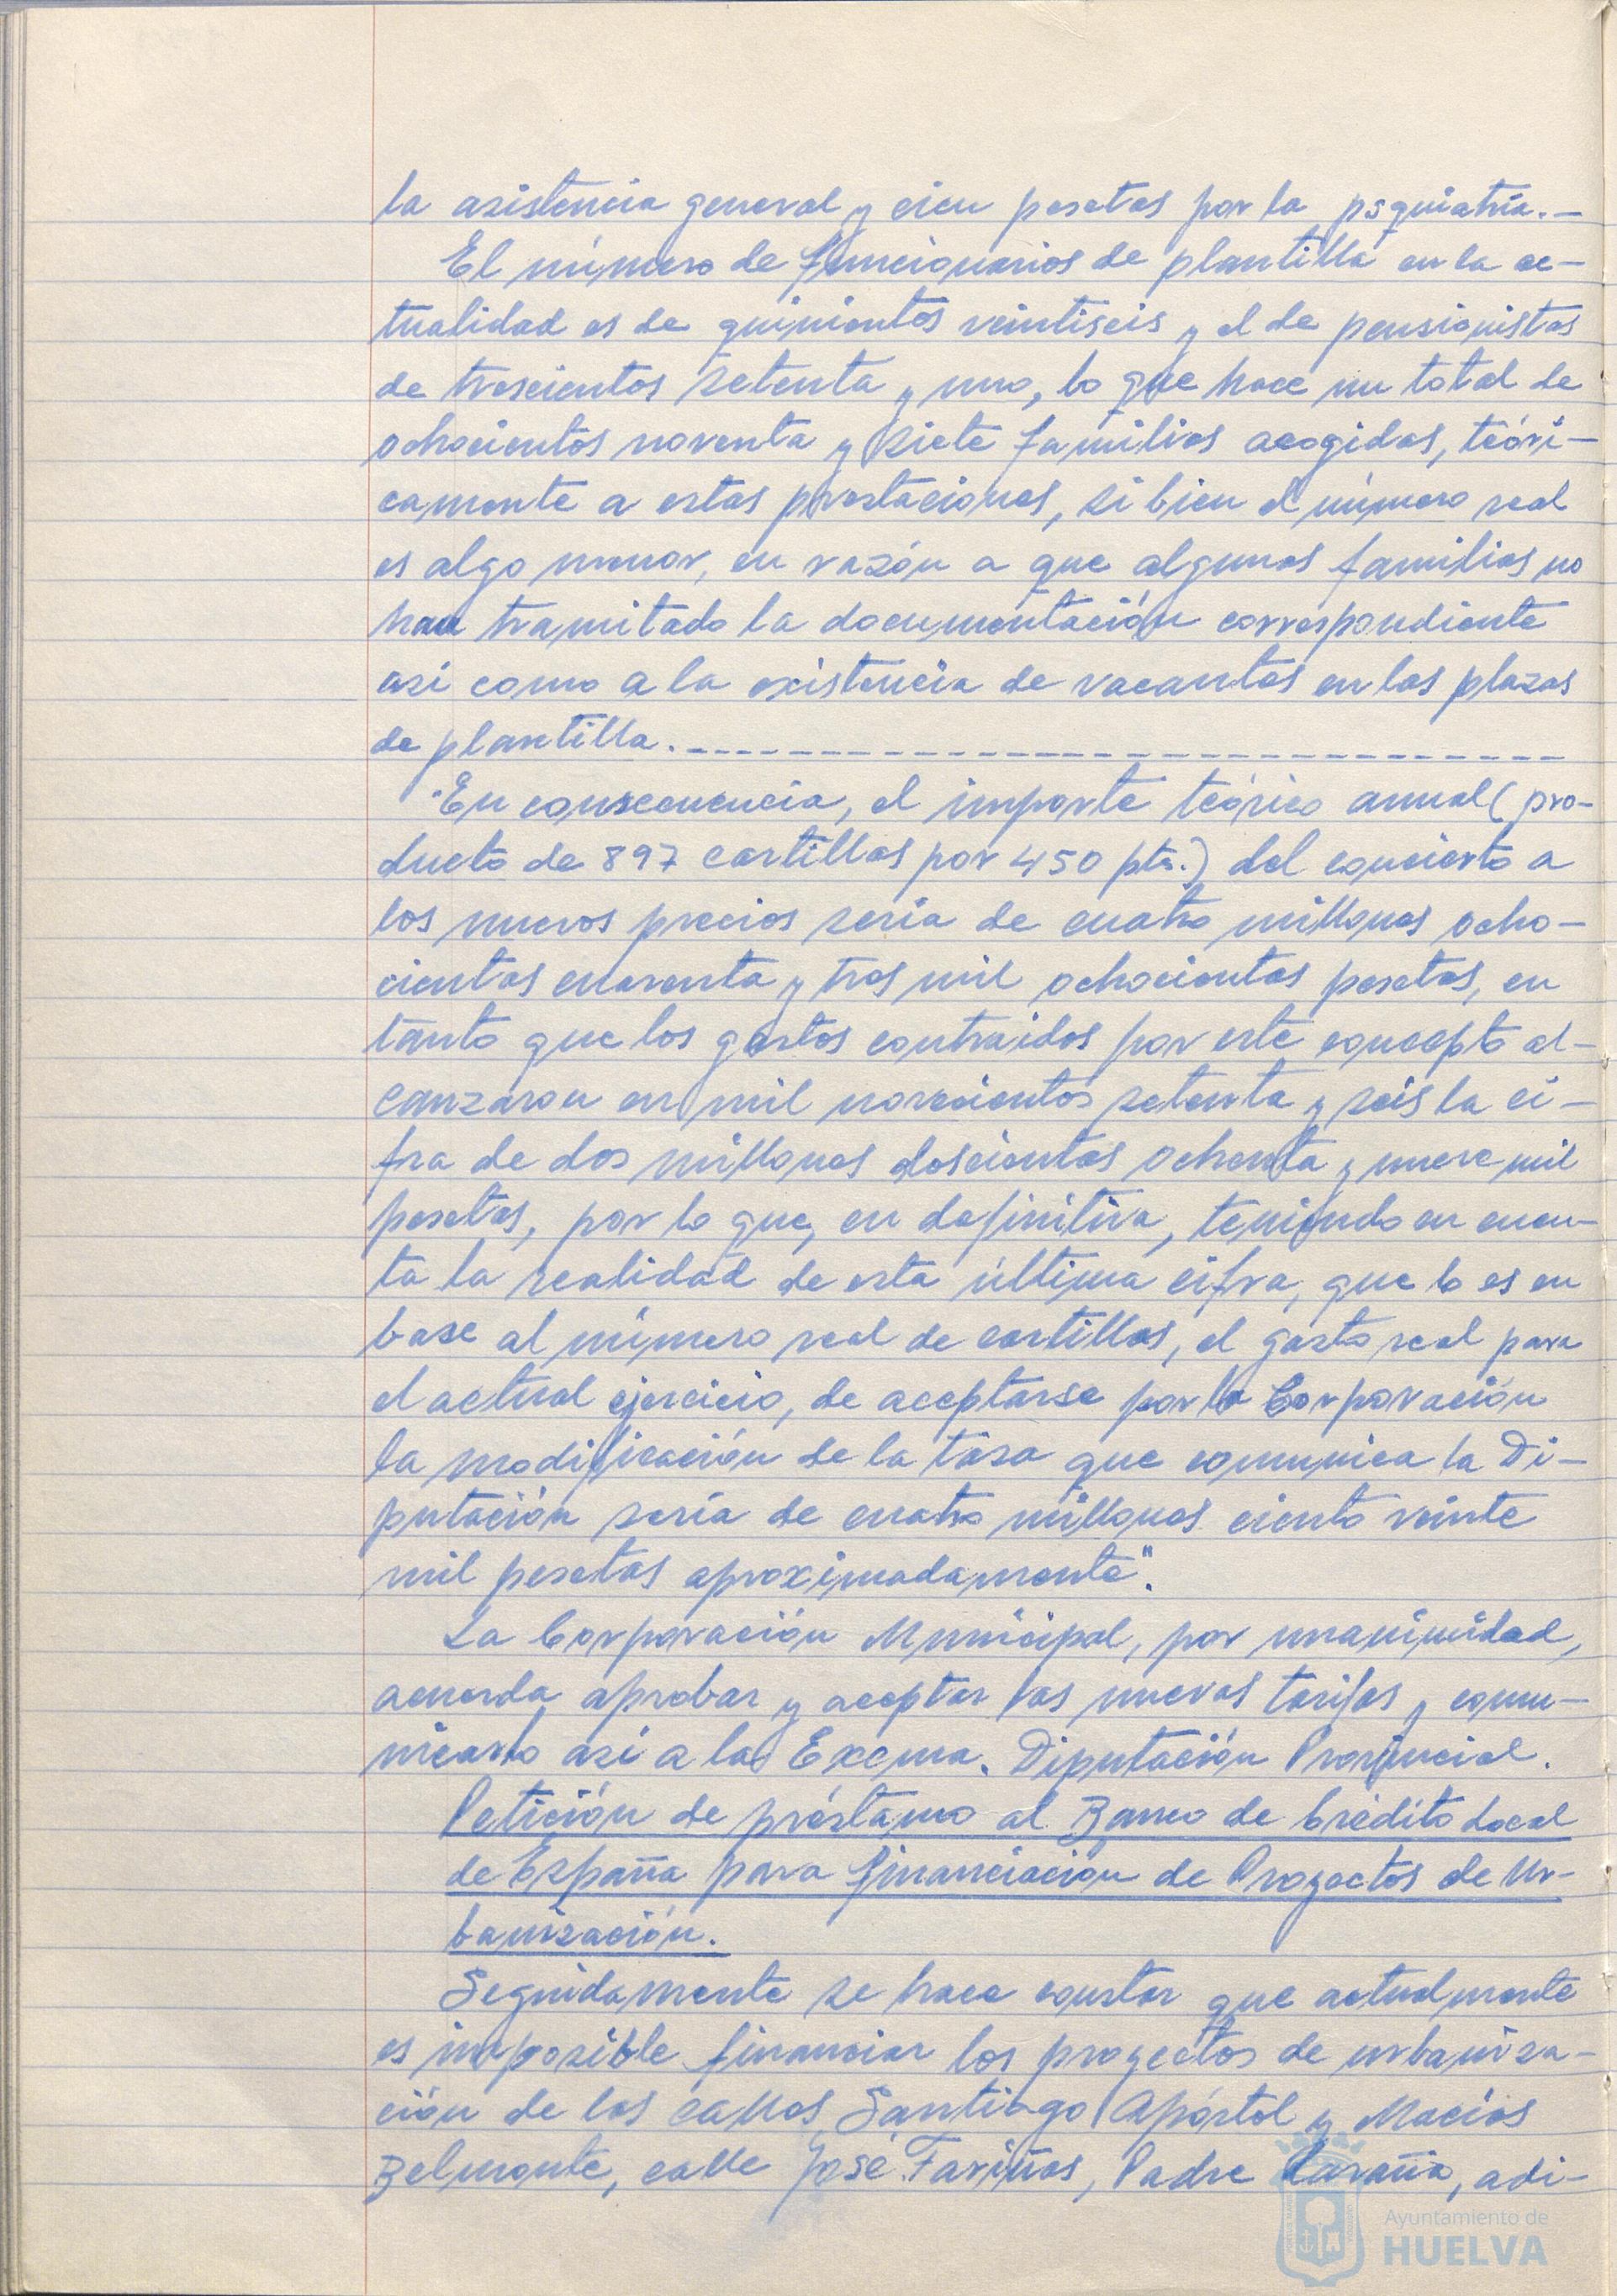 la asistencia general y cien pesetas por la psquiatría.—
El número de funcionarios de plantilla en la ac-
tualidad es de quinientos veintiseis y el de pensionistas
de trescientos setenta y uno, lo que hace un total de
ochocientos noventa y siete familias acogidas, teóri-
camente a estas prestaciones, si bien el número real
es algo menor, en razón a que algunas familias no
han tramitado la documentación correspondiente
asi como a la existencia de vacantes en las plazas
de plantilla.------------------------------
"En consecuencia, el importe teórico anual (pro-
ducto de 897 cartillas por 450 pts.) del concierto a
los nuevos precios sería de cuatro millones ocho-
cientas cuarenta y tres mil ochocientas pesetas, en
tanto que los gastos contraidos por este concepto al-
canzaron en mil novecientos setenta y seis la ci-
fra de dos millones doscientas ochenta y nueve mil
pesetas, por lo que, en definitiva, teniendo en cuen-
ta la realidad de esta última cifra, que lo es en
base al número real de cartillas, el gasto real para
el actual ejercicio, de aceptarse por la Corporación
la modificación de la tasa que comunica la Di-
putación sería de cuatro millones ciento veinte
mil pesetas aproximadamente".
La Corporación Municipal, por unanimidad,
acuerda aprobar y aceptar las nuevas tarifas y comu-
nicarlo asi a la Excma. Diputación Provincial.
Petición de préstamo al Banco de Crédito Local
de España para financiación de Proyectos de Ur-
banización.
Seguidamente se hace constar que actualmente
es imposible financiar los proyectos de urbaniza-
ción de las calles Santiago Apóstol y Macías
Belmonte, calle José Fariñas, Padre Laraña, adi-
Ayuntamiento de
HUELVA